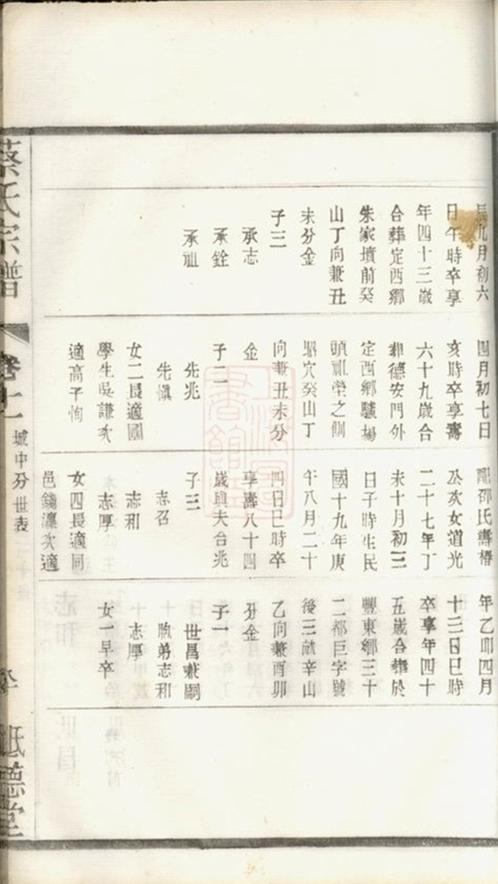 辰九月初六
日午時卒享
年四十三歲
合葬定西鄉
朱家墳前癸
山丁向兼丑
未分金
子三
承志
承銓
承祖
四月初七日
亥時卒享壽
六十九歲合
葬德安門外
定西鄉驥場
頭祖塋之側
昭穴癸山丁
向兼丑未分
金
子二
先兆
先愼
女二長適國
學生吳謙次
適高子恂
配邵氏壽楷
公次女道光
二十七年丁
未十月初三
日子時生民
國十九年庚
午八月二十
四日巳時卒
享壽八十四
歲與夫合兆
子三
志召
志和
志厚
女四長適同
邑錢瀼次適
年乙卯四月
十三日巳時
卒享年四十
五歲合葬於
豐東鄉三十
二都巨字號
後三畝辛山
乙向兼酉卯
分金
子一
世昌兼嗣
胞弟志和
志厚
女一早卒
蔡氏宗譜
卷十一
城中分世表
祗德堂